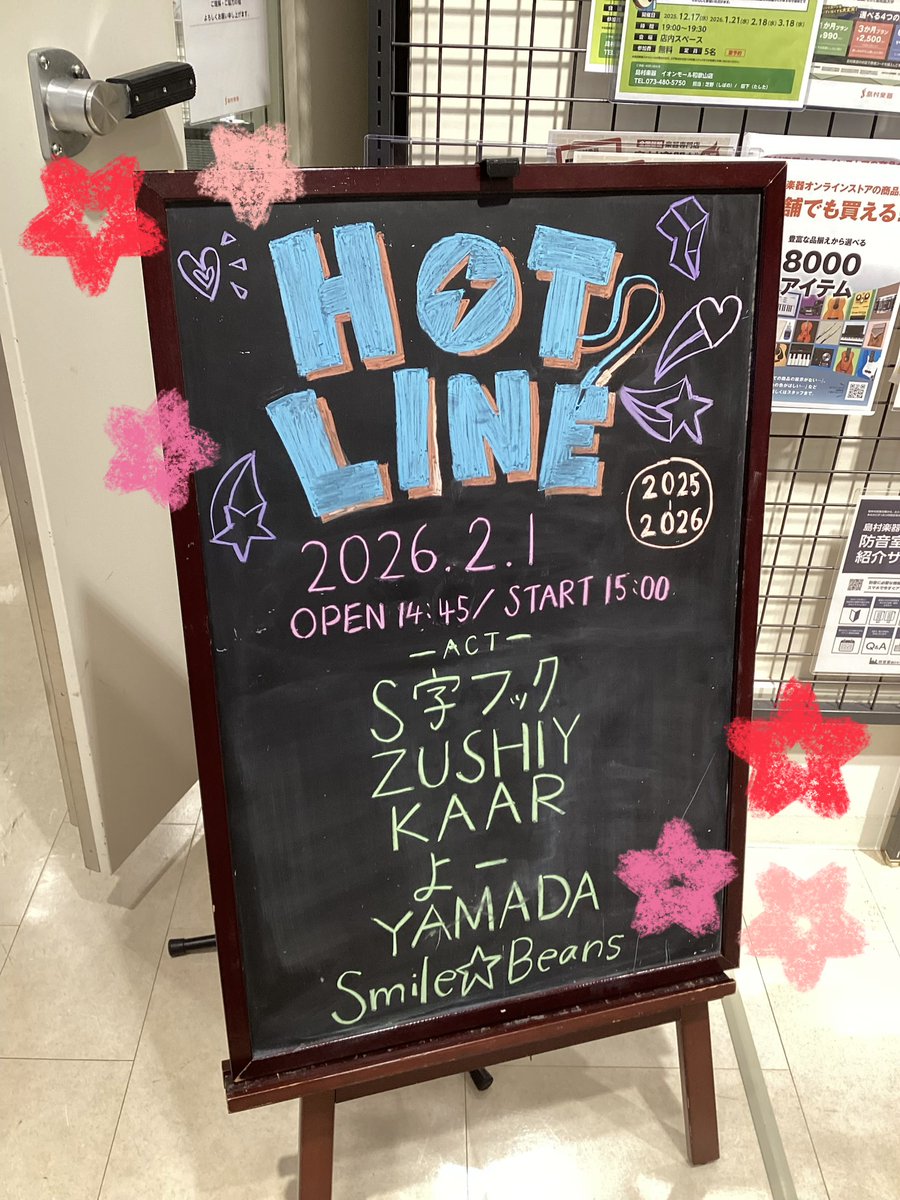 よろしくお願い申し上げます。
島村楽器
開催日 2025.12.17(水) 2026.1.21(水) 2.18(水) 3.18(水)
時間 19:00~19:30
会場 店内スペース
参加費 無料 定員 5名
島村楽器 イオンモール和歌山店
TEL.073-480-5750
選べる4つの
¥990
3か月プラン
¥2,500
島村楽器
楽器オンラインストアの商品
舗でも買える!
豊富な品揃えから選べる
8000
アイテム
島村楽器
防音室
紹介サ
Q&A
HOT
LINE
2025
-
2026
2026.2.1
OPEN 14:45/ START 15:00
-ACT-
S字フック
ZUSHIY
KAAR
よー
YAMADA
Smile☆Beans